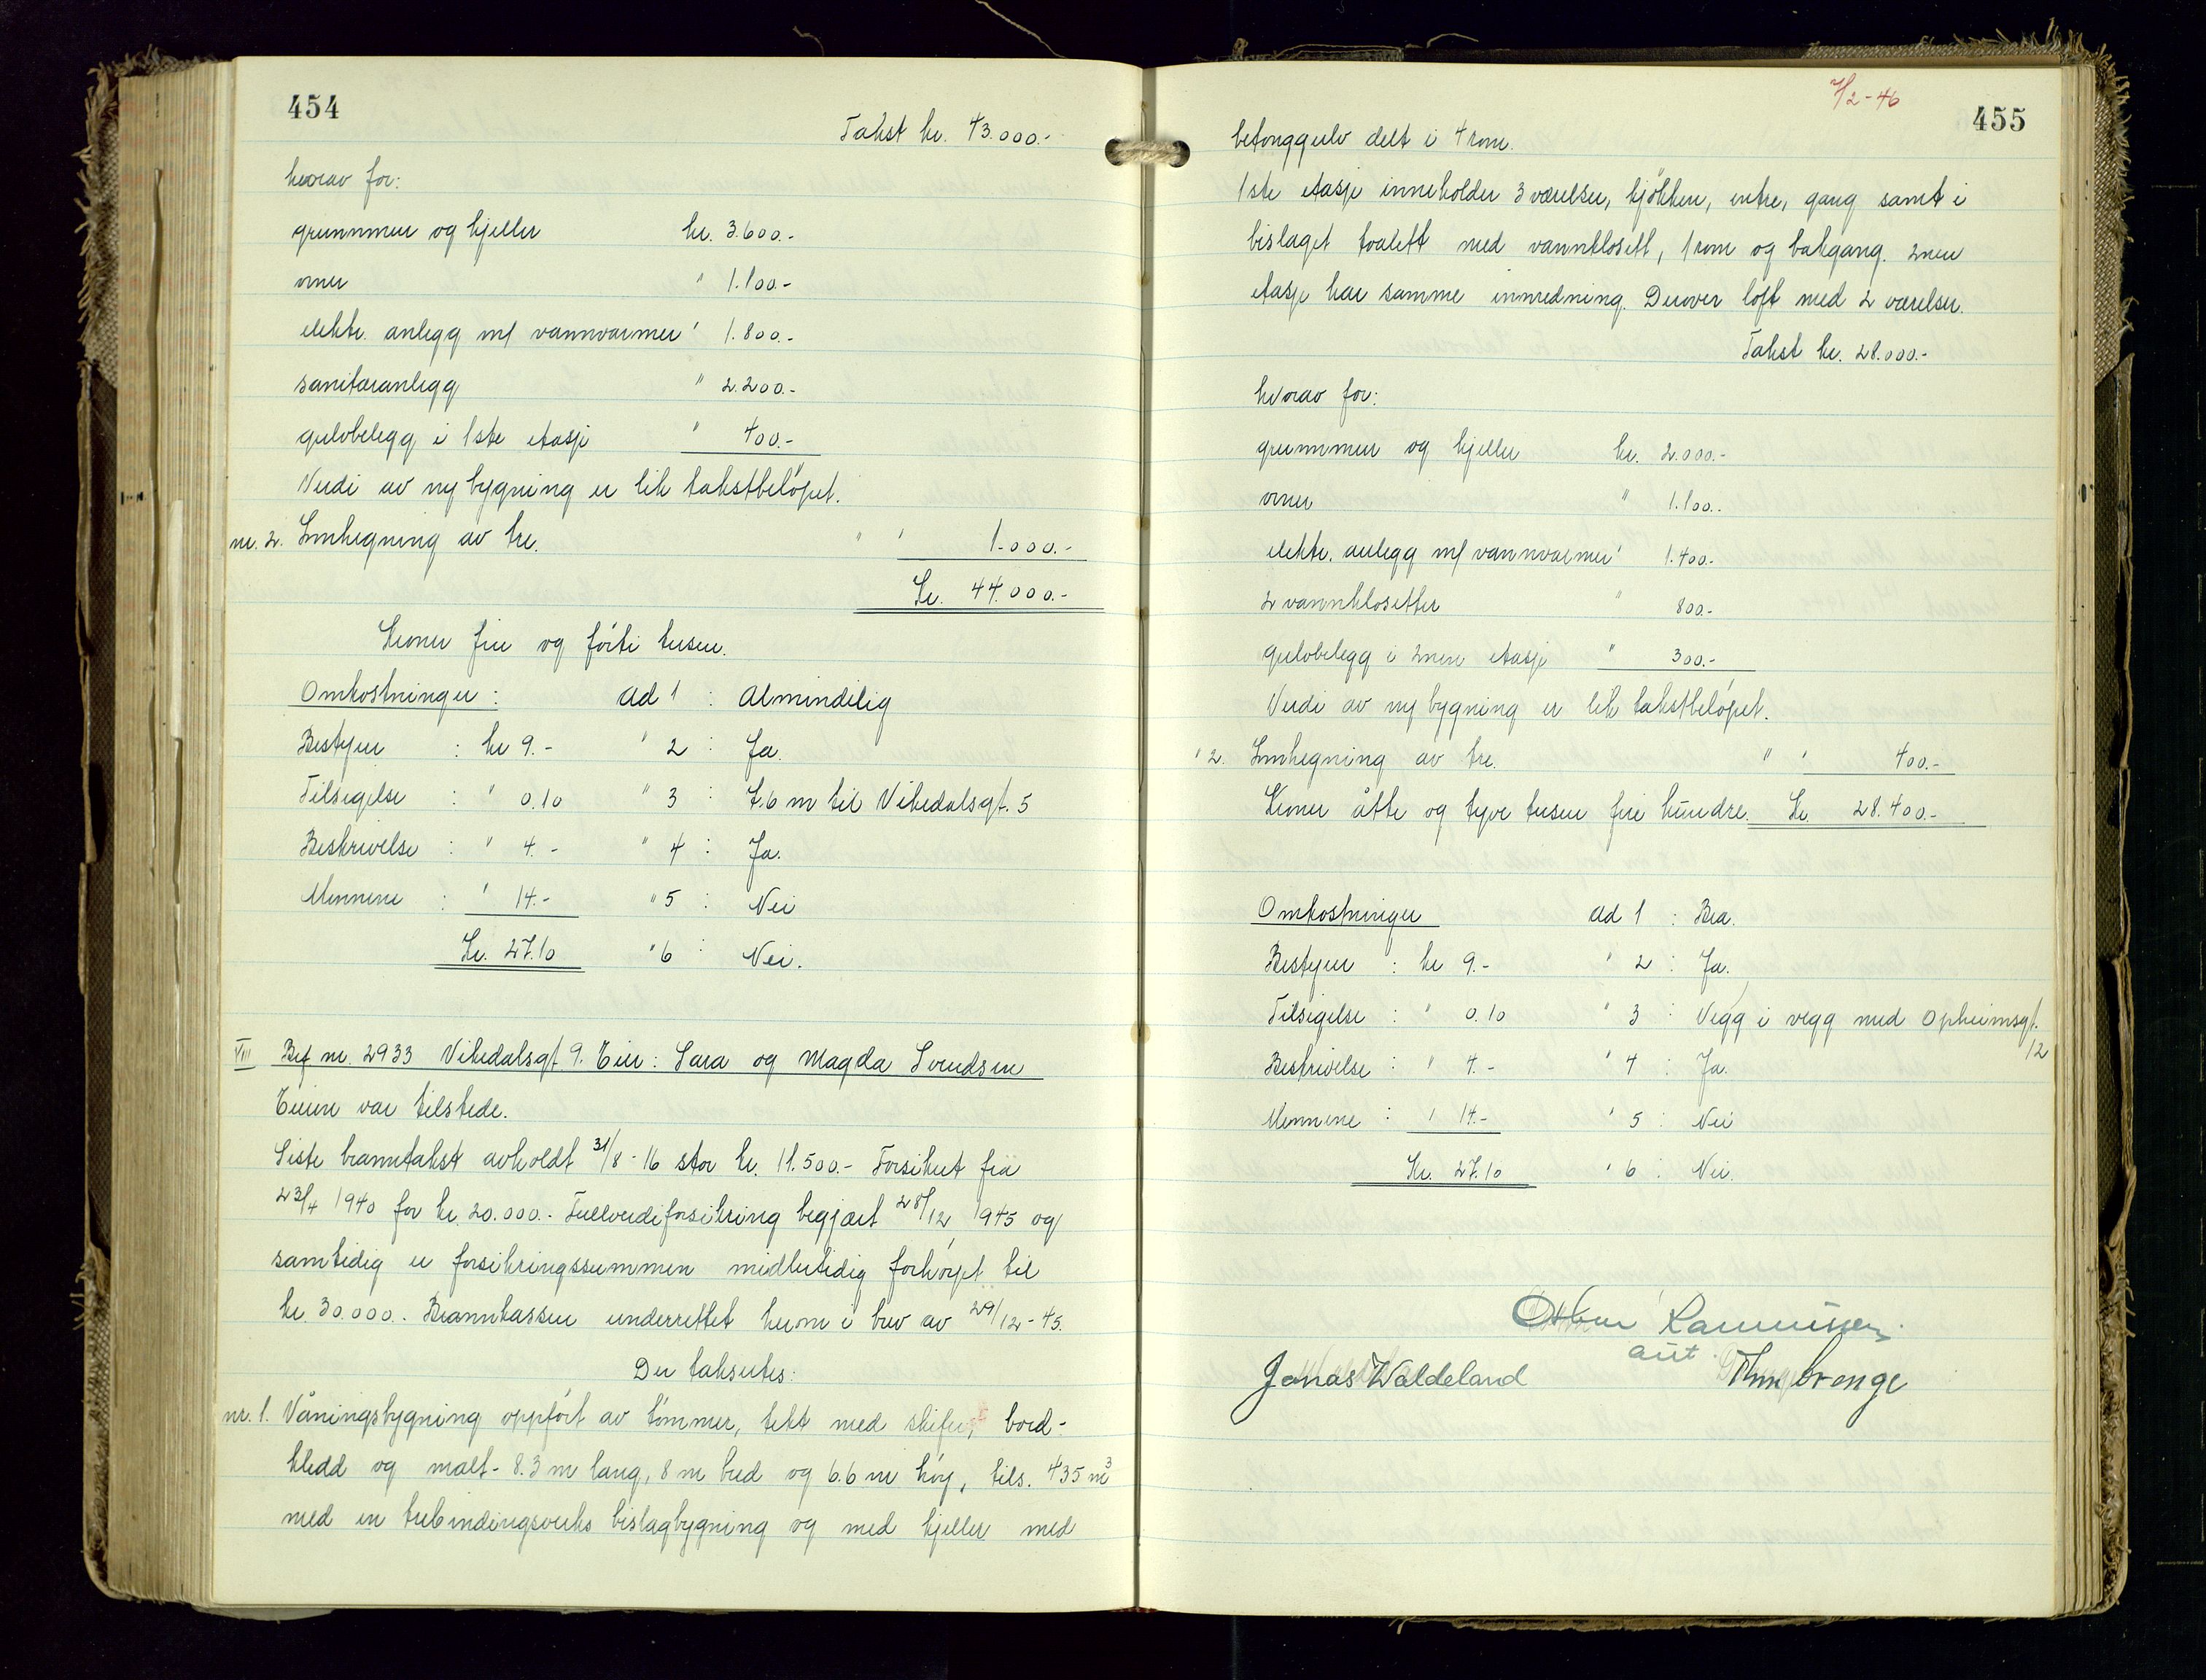 454
Takst kr. 43.000.-
hvorav for:
grunnmur og kjeller kr. 3.600.-
ovner " 1.100.-
elektr. anlegg m/ vannvarmer " 1.800.-
sanitæranlegg " 2.200.-
gulvbelegg i 1ste etasje " 400.-
Verdi av ny bygning er lik takstbeløpet.
nr. 2. Innhegning av tre. " " 1.000.-
Kr. 44.000.-
Kroner fire og førti tusen.
Omkostninger: ad 1 : Almindelig
Bestyrer : kr 9.- " 2 : Ja.
Tilsigelse : " 0.10 " 3 : 7.6 m til Vikedalsgt. 5
Beskrivelse : " 4.- " 4 : Ja.
Mennene : " 14.- " 5 : Nei
Kr. 27.10 " 6 : Nei.
VIII Brf. nr. 2933 Vikedalsgt 9. Eier: Sara og Magda Svendsen
Eieren var tilstede.
Siste branntakst avholdt 31/8-16 stor kr. 11.500.- Forsikret fra
23/4 1940 for kr. 20.000.- Fullverdiforsikring begjært 28/12 1945 og
samtidig er forsikringssummen midlertidig forhøyet til
kr. 30.000.. Brannkassen underrettet herom i brev av 29/12-45.
Der takseres:
nr. 1. Våningsbygning oppført av tømmer, tekt med skifer, bord-
kledd og malt - 8.3 m lang, 8 m bred og 6.6 m høy, tils. 435 m3
med en trebindingsverks bislagbygning og med kjeller med
7/2-46
455
betonggulv delt i 4 rom.
1ste etasje inneholder 3 værelser, kjøkken, entre, gang samt i
bislaget toalett med vannklosett, 1 rom og bakgang. 2nen
etasje har samme innredning. Derover loft med 2 værelser.
Takst kr. 28.000.-
hvorav for:
grunnmur og kjeller kr. 2.000.-
ovner " 1.100..
elektr. anlegg m/ vannvarmer " 1.400.-
2 vannklosetter " 800.-
gulvbelegg i 2nen etasje " 300.-
Verdi av ny bygning er lik takstbeløpet.
" 2. Innhegning av tre. " " 400.-
Kroner åtte og tyve tusen fire hundre. Kr. 28.400.-
Omkostninger ad 1 : Bra.
Bestyrer : kr 9.- " 2 : Ja.
Tilsigelse : " 0.10 " 3 : Vegg i vegg med Opheimsgt.
12
Beskrivelse : " 4.- " 4 : Ja.
Mennene : " 14.- " 5 : Nei
Kr. 27.10 " 6 : Nei.
Rasmussen
aut.
Jonas Waldeland